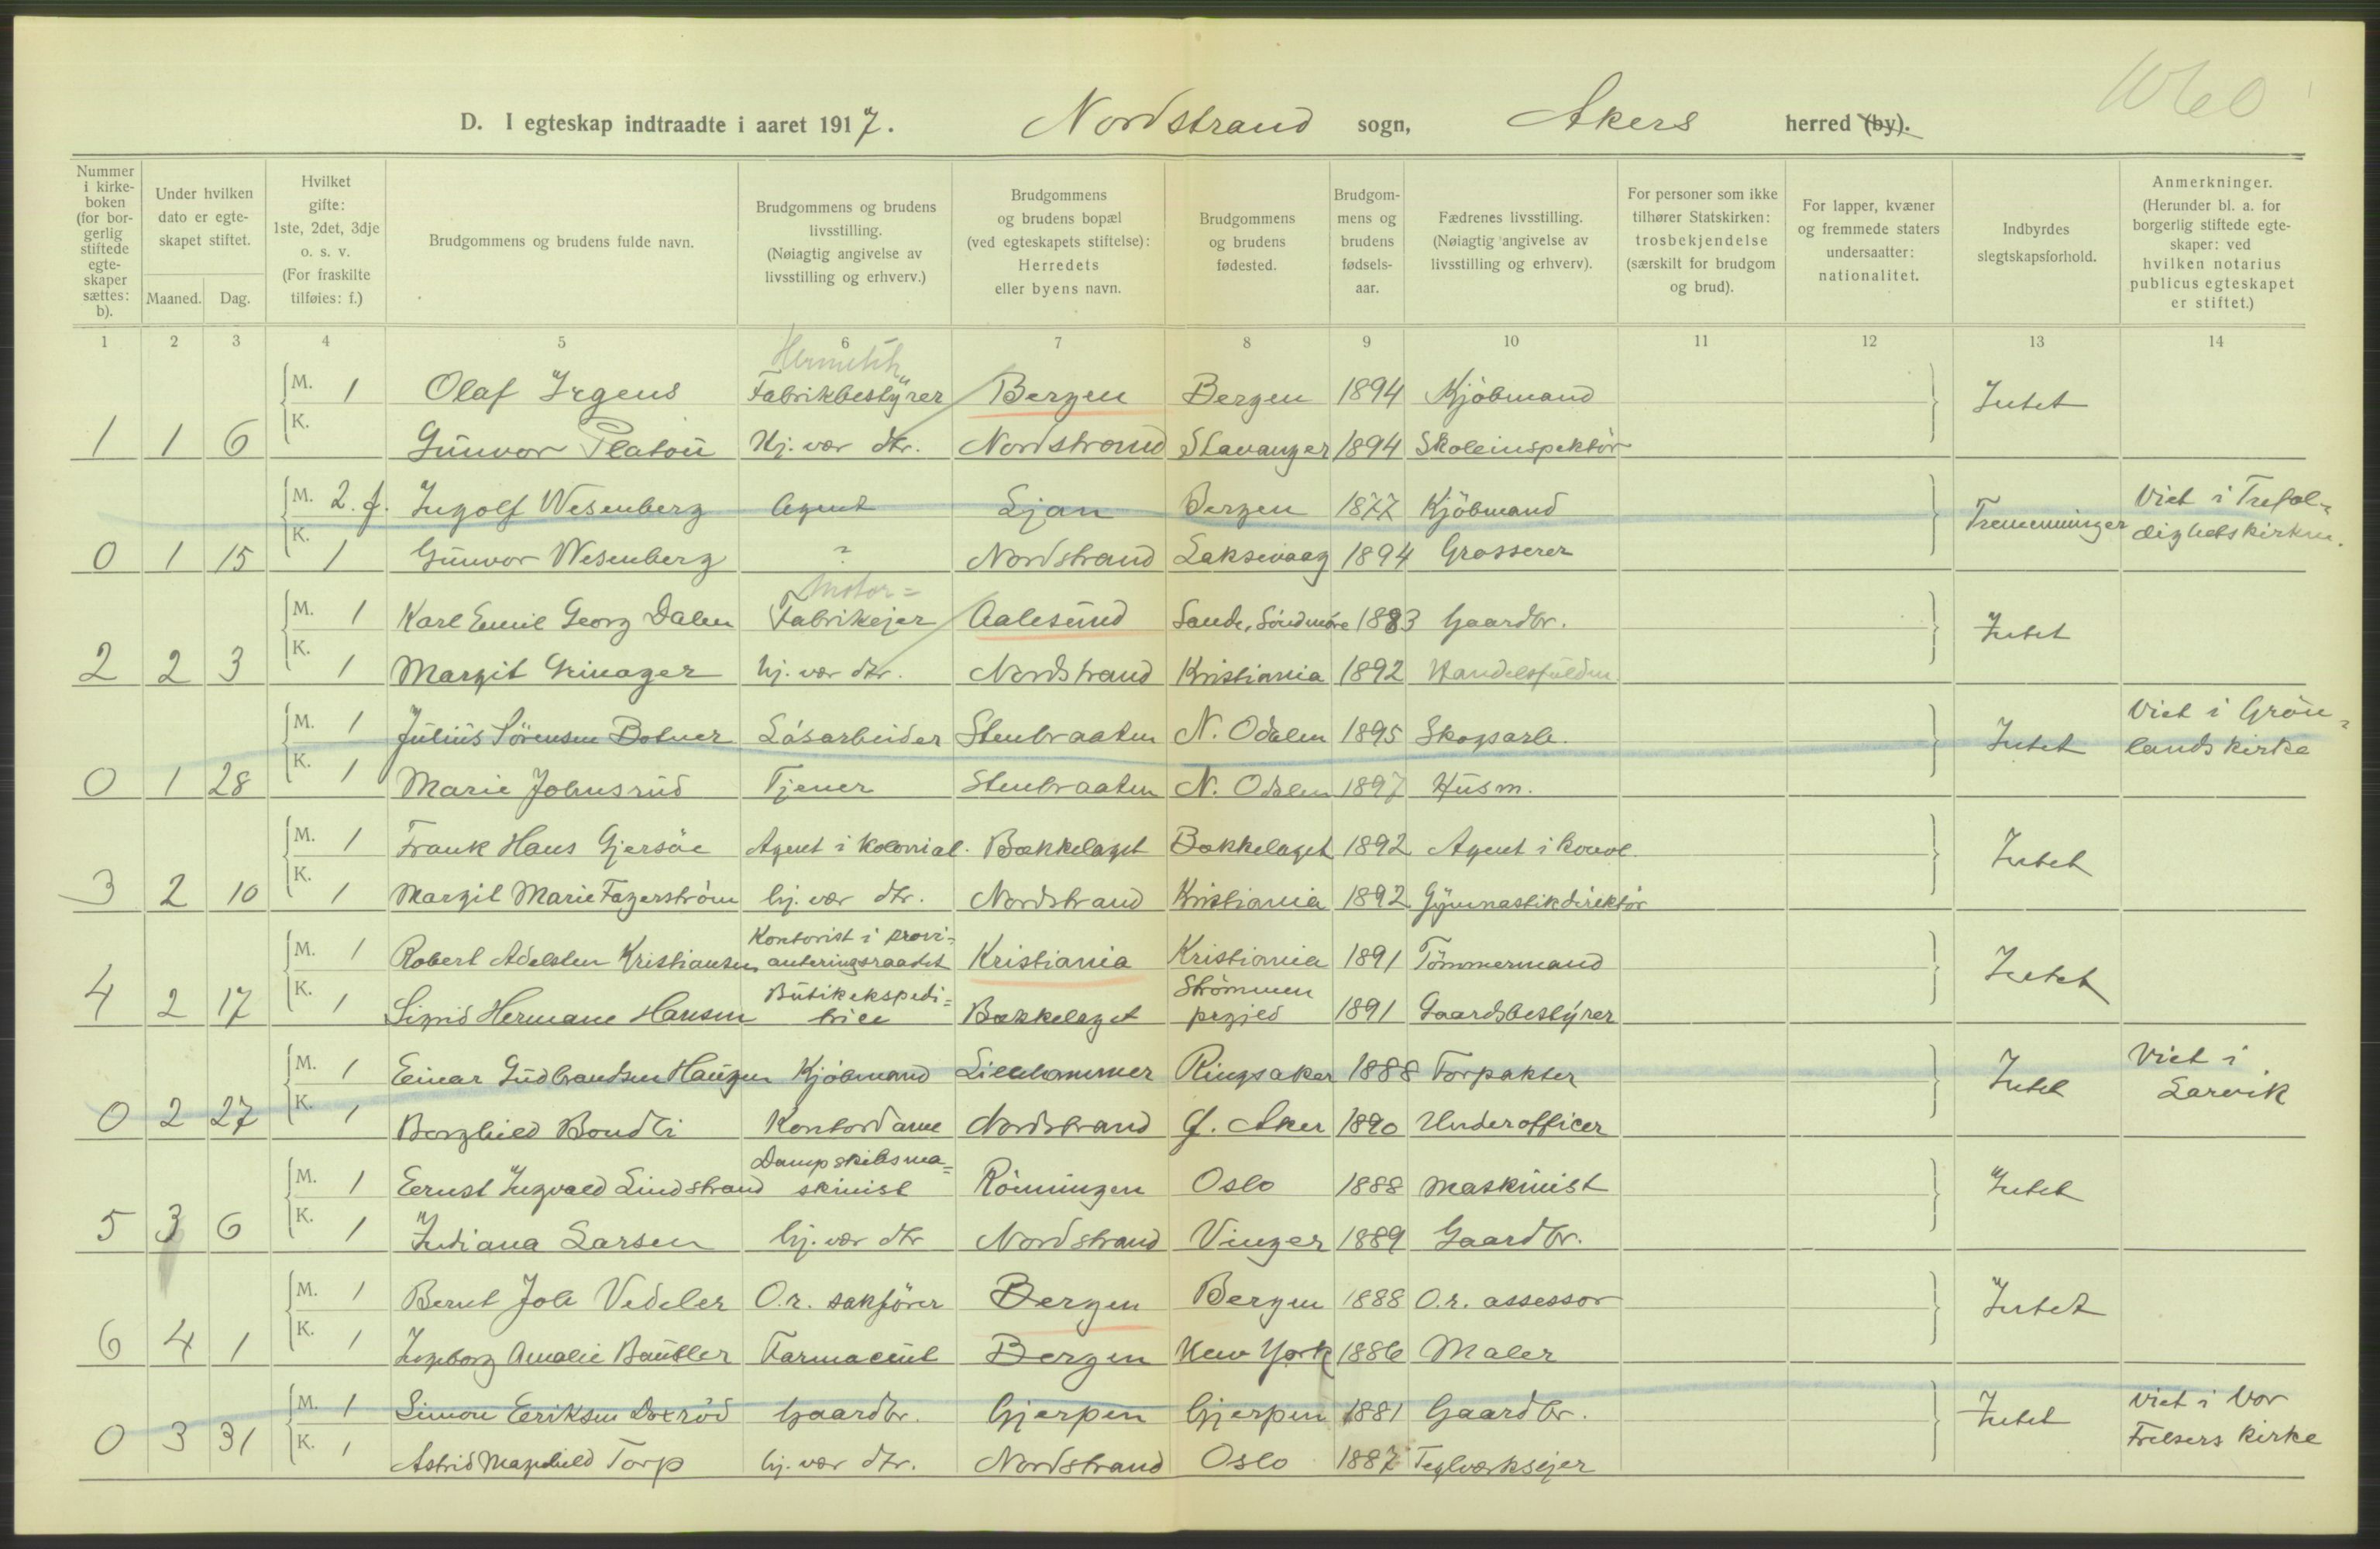 1060
D. I egteskap indtraadte i aaret 1917. Nordstrand sogn, Akers herred (by).
Nummer i kirkeboken (for borgerlig stiftede egteskaper sættes: b).
Under hvilken dato er egteskapet stiftet.
Maaned. Dag.
Hvilket gifte: 1ste, 2det, 3dje o. s. v. (For fraskilte tilføies: f.)
Brudgommens og brudens fulde navn.
Brudgommens og brudens livsstilling. (Nøiagtig angivelse av livsstilling og erhverv.)
Brudgommens og brudens bopæl (ved egteskapets stiftelse): Herredets eller byens navn.
Brudgommens og brudens fødested.
Brudgommens og brudens fødselsaar.
Fædrenes livsstilling. (Nøiagtig angivelse av livsstilling og erhverv).
For personer som ikke tilhører Statskirken: trosbekjendelse (særskilt for brudgom og brud).
For lapper, kvæner og fremmede staters undersaatter: nationalitet.
Indbyrdes slegtskapsforhold.
Anmerkninger. (Herunder bl. a. for borgerlig stiftede egteskaper: ved hvilken notarius publicus egteskapet er stiftet.)
1 2 3 4 5 6 7 8 9 10 11 12 13 14
Hermetikk
M. 1 Olaf Irgens Fabrikbestyrer Bergen Bergen 1894 Kjøbmand Intet
1 1 6 K. Gunvor Platou Hj. vær. dtr. Nordstrand Stavanger 1894 Skoleinspektör
M. 2. f. Ingolf Wesenberg Agent Ljan Bergen 1877 Kjöbmand Tremenninger Viet i Trefol-
0 1 15 K. 1 Gunvor Wesenberg ? Nordstrand Laksevaag 1894 Grosserer dighetskirken.
Motor=
M. 1 Karl Emil Georg Dalen Fabrikejer Aalesund Sande, Söndmöre 1883 Gaardbr. Intet
2 2 3 K. 1 Margit Grinager hj. vær dtr. Nordstrand Kristiania 1892 Handelsfuldm
M. 1 Julius Sörensen Botner Läsarbeider Stenbraaten N. Odalen 1895 Skogarb. Intet Viet i Grön=
0 1 28 K. 1 Marie Johnsrud Tjener Stenbraaten N. Odalen 1897 Husm. landskirke
M. 1 Frank Hans Gjersöe Agent i kolonial. Bækkelaget Bækkelaget 1892 Agent i kolol. Intet
3 2 10 K. 1 Margit Marie Fagerström hj. vær dtr. Nordstrand Kristiania 1892 Gymnastikdirektör
M. 1 Robert Adelsten Kristiansen Kontorist i provi=
anteringsraadet Kristiania Kristiania 1891 Tömmermand Intet
4 2 17 K. 1 Sigrid Hermane Hansen Butikekspedi=
trice Bækkelaget Strömmen
prgjld 1891 Gaardsbestyrer
M. 1 Einar Gudbrandsen Haugen Kjöbmand Lillehammer Ringsaker 1888 Forpakter Intet Viet i
0 2 27 K. 1 Borghild Bondli Kontordame Nordstrand G. Aker 1890 Underofficer Larvik
M. 1 Ernst Ingvald Lindstrand Dampskibsma=
skinist Rönningen Oslo 1888 Maskinist Intet
5 3 6 K. 1 Indiana Larsen hj. vær dtr Nordstrand Vinger 1889 Gaardbr.
M. 1 Bernt Joh Vedeler O.r. sakförer Bergen Bergen 1888 O.r. assessor Intet
6 4 1 K. 1 Ingeborg Amalie Bautler Farmaceut Bergen New York 1886 Maler
M. 1 Simon Eriksen Doxröd Gaardbr. Gjerpen Gjerpen 1881 Gaardbr. Intet Viet i Vor
0 3 31 K. 1 Astrid Magnhild Torp hj. vær dtr. Nordstrand Oslo 1887 Teglværksejer Frelsers kirke